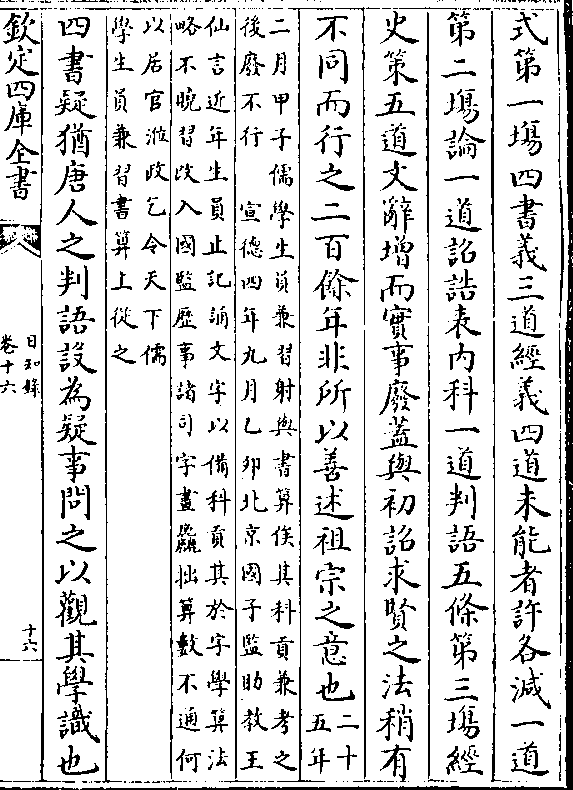 式第一塲四書義三道經義四道未能者許各減一道
第二塲論一道詔誥表内科一道判語五條第三塲經
史策五道文辭增而實事廢蓋與初詔求賢之法稍有
不同而行之二百餘年非所以善述祖宗之意也二十
五年
二月甲子儒學生員兼習射與書算俟其科貢兼考之
後廢不行 宣德四年九月乙卯北京國子監助教王
仙言近年生員止記誦文字以備科貢其於字學算法
略不曉習改入國監歷事諸司字畫麤拙算數不通何
以居官涖政乞令天下儒
學生員兼習書算上從之
四書疑猶唐人之判語設為疑事問之以觀其學識也
欽定四庫全書
日知錄
卷十六
十六